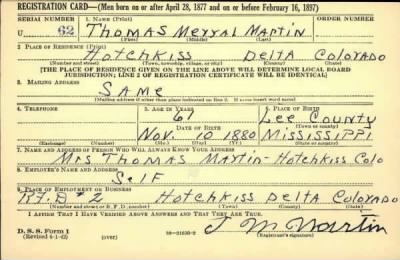 REGISTRATION CARD—(Men born on or after April 28, 1877 and on or before February 16, 1897)
SERIAL NUMBER 1. NAME (Print) ORDER NUMBER
U 62 THOMAS Merral MARTIN
(First) (Middle) (Last)
2. PLACE OF RESIDENCE (Print)
HOTCHKISS DELTA COLORADO
(Number and street) (Town, township, village, or city) (County) (State)
[THE PLACE OF RESIDENCE GIVEN ON THE LINE ABOVE WILL DETERMINE LOCAL BOARD
JURISDICTION; LINE 2 OF REGISTRATION CERTIFICATE WILL BE IDENTICAL]
3. MAILING ADDRESS
SAME
(Mailing address if other than place indicated on line 2. If same insert word same)
4. TELEPHONE 5. AGE IN YEARS 6. PLACE OF BIRTH
61 Lee County
DATE OF BIRTH (Town or county)
Nov. 10 1880 MISSISSIPPI
(Exchange) (Number) (Mo.) (Day) (Yr.) (State or country)
7. NAME AND ADDRESS OF PERSON WHO WILL ALWAYS KNOW YOUR ADDRESS
Mrs THOMAS MARTIN - HOTCHKISS Colo
8. EMPLOYER'S NAME AND ADDRESS
Self
9. PLACE OF EMPLOYMENT OR BUSINESS
R.F.D #2 HOTCHKISS Delta COLORADO
(Number and street or R. F. D. number) (Town) (County) (State)
I AFFIRM THAT I HAVE VERIFIED ABOVE ANSWERS AND THAT THEY ARE TRUE.
D. S. S. Form 1
(Revised 4-1-42) (over) 16—21630-2 (Registrant's signature)
T M Martin